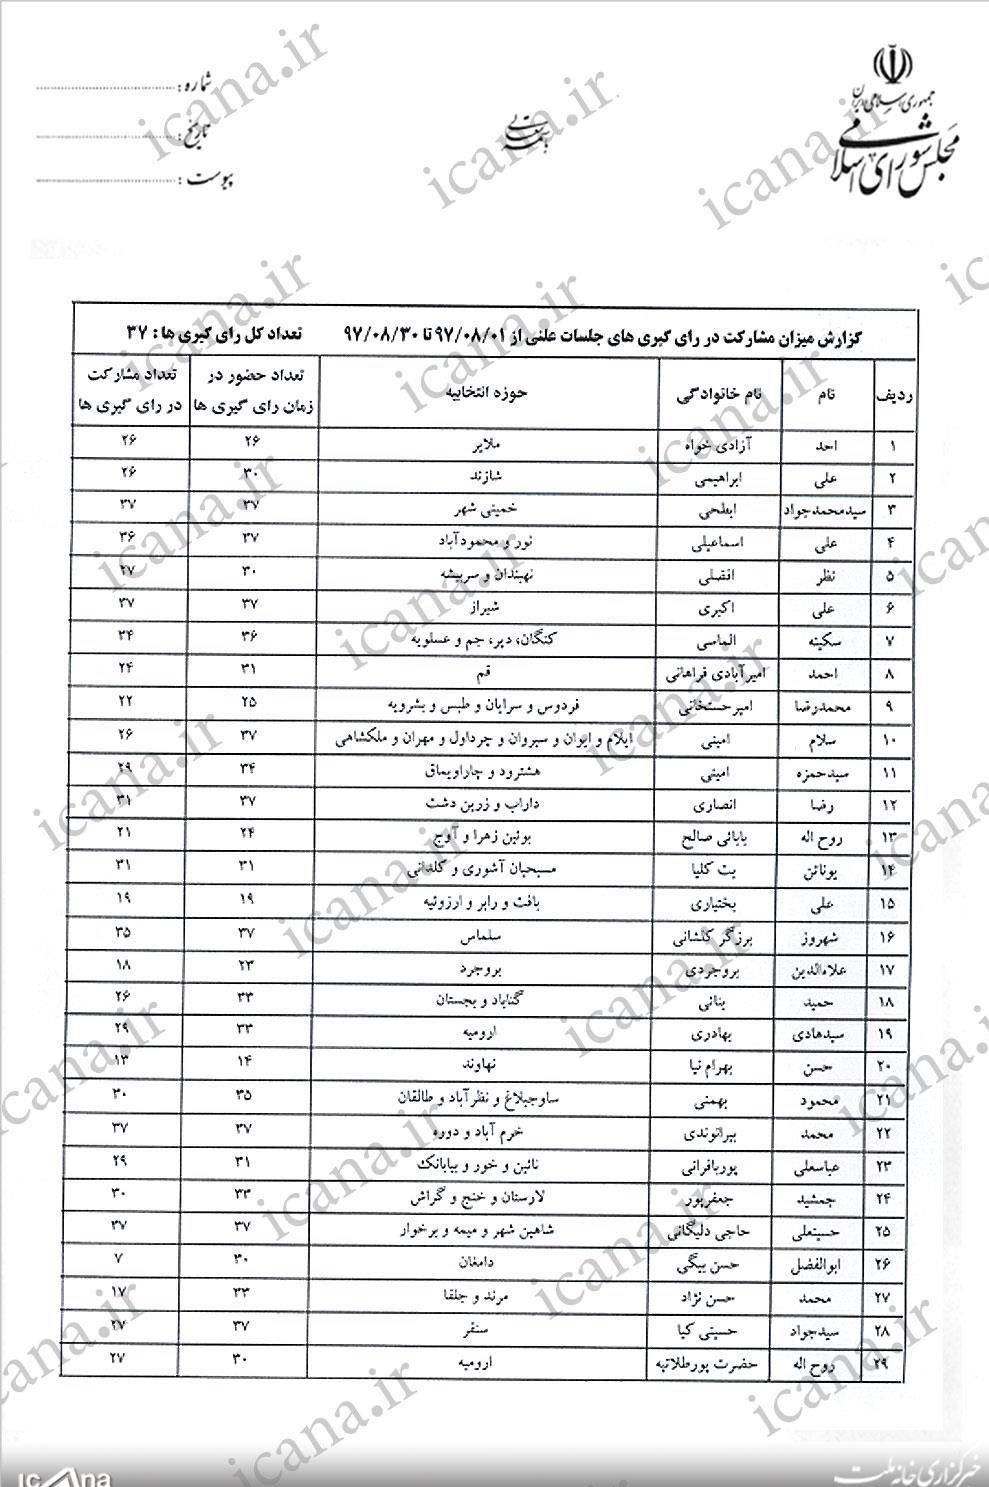 جمهوری اسلامی ایران
مجلس شورای اسلامی
باسمه تعالی
شماره :
تاریخ :
پیوست :
گزارش میزان مشارکت در رای گیری های جلسات علنی از ۹۷/۰۸/۰۱ تا ۹۷/۰۸/۳۰ تعداد کل رای گیری ها : ۳۷
ردیف نام نام خانوادگی حوزه انتخابیه تعداد حضور در زمان رای گیری ها تعداد مشارکت در رای گیری ها
۱ احد آزادی خواه ملایر ۲۶ ۲۶
۲ علی ابراهیمی شازند ۳۰ ۲۶
۳ سیدمحمدجواد ابطحی خمینی شهر ۳۷ ۳۷
۴ علی اسماعیلی نور و محمودآباد ۳۷ ۳۶
۵ نظر افضلی نهبندان و سربیشه ۳۰ ۲۷
۶ علی اکبری شیراز ۳۷ ۳۷
۷ سکینه الماسی کنگان، دیر، جم و عسلویه ۳۶ ۳۴
۸ احمد امیرآبادی فراهانی قم ۳۱ ۲۴
۹ محمدرضا امیرحسنخانی فردوس و سرایان و طبس و بشرویه ۲۵ ۲۲
۱۰ سلام امینی ایلام و ایوان و سیروان و چرداول و مهران و ملکشاهی ۳۷ ۲۶
۱۱ سیدحمزه امینی هشترود و چاراویماق ۳۴ ۲۹
۱۲ رضا انصاری داراب و زرین دشت ۳۷ ۳۱
۱۳ روح اله بابائی صالح بوئین زهرا و آوج ۲۴ ۲۱
۱۴ یوناتن بت کلیا مسیحیان آشوری و کلدانی ۳۱ ۳۱
۱۵ علی بختیاری بافت و رابر و ارزوئیه ۱۹ ۱۹
۱۶ شهروز برزگر کلشانی سلماس ۳۷ ۳۵
۱۷ علاءالدین بروجردی بروجرد ۲۳ ۱۸
۱۸ حمید بنائی گناباد و بجستان ۳۳ ۲۶
۱۹ سیدهادی بهادری ارومیه ۳۳ ۲۹
۲۰ حسن بهرام نیا نهاوند ۱۴ ۱۳
۲۱ محمود بهمنی ساوجبلاغ و نظرآباد و طالقان ۳۵ ۳۰
۲۲ محمد بیرانوندی خرم آباد و دوره ۳۷ ۳۷
۲۳ عباسعلی پوربافرانی نائین و خور و بیابانک ۳۱ ۲۹
۲۴ جمشید جعفرپور لارستان و خنج و گراش ۳۳ ۳۰
۲۵ حسینعلی حاجی دلیگانی شاهین شهر و میمه و برخوار ۳۷ ۳۷
۲۶ ابوالفضل حسن بیگی دامغان ۳۰ ۷
۲۷ محمد حسن نژاد مرند و جلفا ۳۳ ۱۷
۲۸ سیدجواد حسینی کیا سنقر ۳۷ ۲۷
۲۹ روح اله حضرت پورطلاتپه ارومیه ۳۰ ۲۷
icana.ir
icana
خبرگزاری خانه ملت